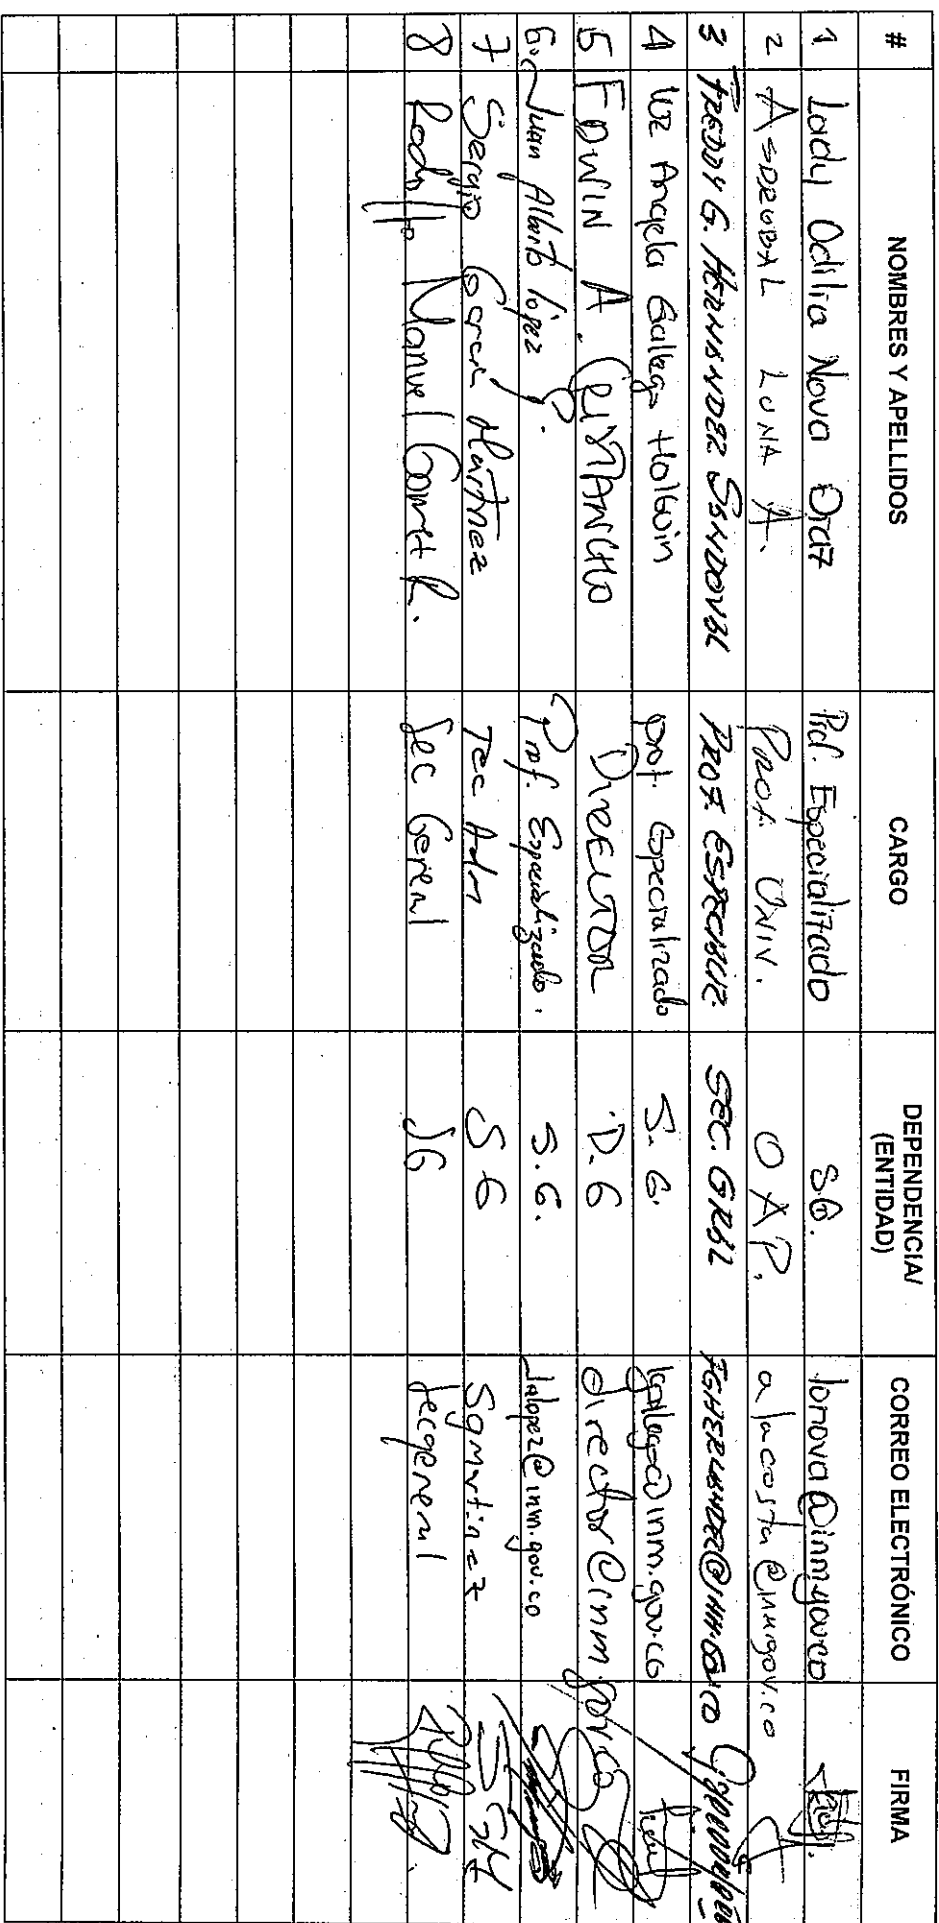 # NOMBRES Y APELLIDOS CARGO DEPENDENCIA/ (ENTIDAD) CORREO ELECTRÓNICO FIRMA
1 Lady Odilia Nova Diaz Prof. Especializado S.G. lonova@inm.gov.co
2 ASDRUBAL LUNA A. Prof. UNIV. OAP. alacosta@inm.gov.co
3 FREDDY G. HERNANDEZ SANDOVAL PROF. ESPECIALIZ. SEC. GRAL FGHERNANDEZ@INM.GOV.CO
4 Luz Angela Gallego Holguin prof. Especializado S. G. lgallego@inm.gov.co
5 EDWIN A. CRISTANCHO DIRECTOR D.G director@inm.gov.co
6. Juan Alberto López Prof. Especializado. S.G. Jalopez@inm.gov.co
7 Sergio Garcia Martinez Tec Adm SG sgmartinez SGM
8 Rodolfo Manuel Gomez R. Sec General SG secgeneral